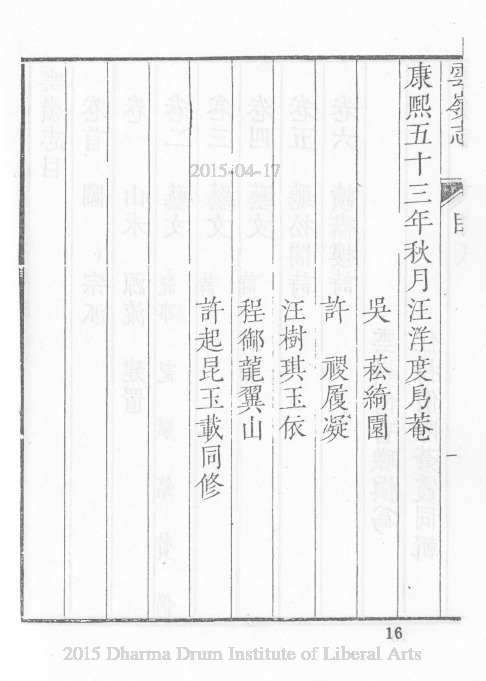 雲嶺志
目
一
康熙五十三年秋月汪洋度舄菴
吳菘綺園
許 禝履凝
汪樹琪玉依
程御龍翼山
許起昆玉載同修
2015-04-17
16
2015 Dharma Drum Institute of Liberal Arts